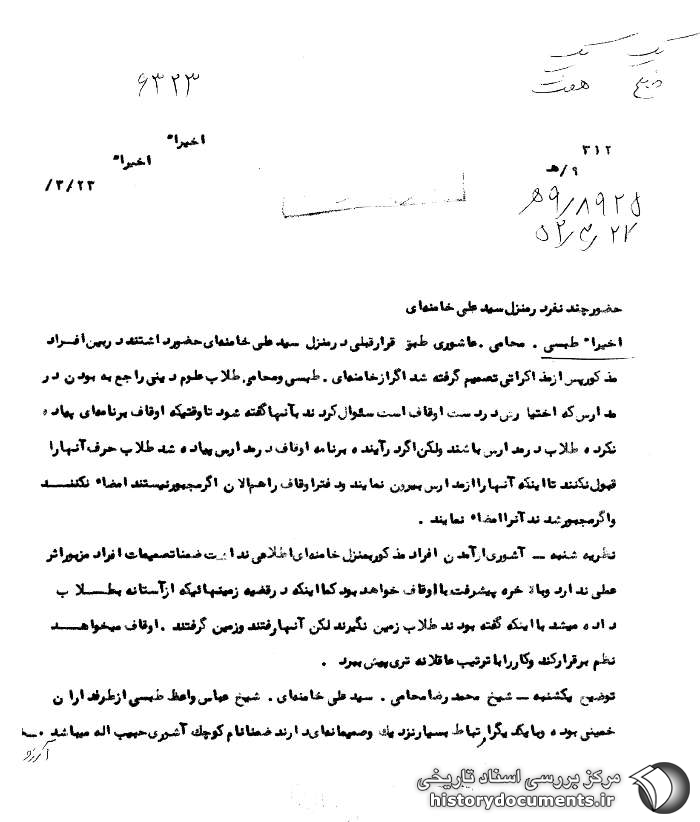 یک یک
ذیع هفت
۶۳۲۳
اخیرا"
اخیرا"
۲۳/۳/
۳۱۲
۹/هـ
۸۹۲۵/۹ھ
۲۷/۳/۵۲
حضور چند نفر در منزل سید علی خامنه‌ای
اخیرا" طبسی . محامی . عاشوری طبق قرار قبلی در منزل سید علی خامنه‌ای حضور داشتند در بین افراد
مذکور پس از مذاکراتی تصمیم گرفته شد اگر از خامنه‌ای . طبسی و محامی طلاب علوم دینی راجع به بودن در
مدارس که اختیارش در دست اوقاف است سئوال کردند بآنها گفته شود تا وقتیکه اوقاف برنامه‌ای پیاده
نکرده طلاب در مدارس باشند ولکن اگر در آینده برنامه اوقاف در مدارس پیاده شد طلاب حرف آنها را
قبول نکنند تا اینکه آنها را از مدارس بیرون نمایند و دفتر اوقاف را هم الان اگر مجبور نیستند امضاء نکننــد
و اگر مجبور شدند آنرا امضاء نمایند .
نظریه شنبه ــ آشوری از آمدن افراد مذکور بمنزل خامنه‌ای اطلاعی نداشت ضمنا تصمیمات افراد مزبور اثر
عملی ندارد و بالاخره پیشرفت با اوقاف خواهد بود کما اینکه در قضیه زمینهائیکه از آستانه بطــلاب
داده میشد با اینکه گفته بودند طلاب زمین نگیرند لکن آنها رفتند و زمین گرفتند . اوقاف میخواهــد
نظم برقرار کند و کار را با ترتیب عاقلانه تری پیش ببرد .
توضیح یکشنبه ــ شیخ محمد رضا محامی . سید علی خامنه‌ای . شیخ عباس واعظ طبسی از طرفداران
خمینی بوده و با یکدیگر ارتباط بسیار نزدیک و صمیمانه‌ای دارند ضمنا نام کوچک آشوری حبیب اله میباشد .
مرکز بررسی اسناد تاریخی
historydocuments.ir